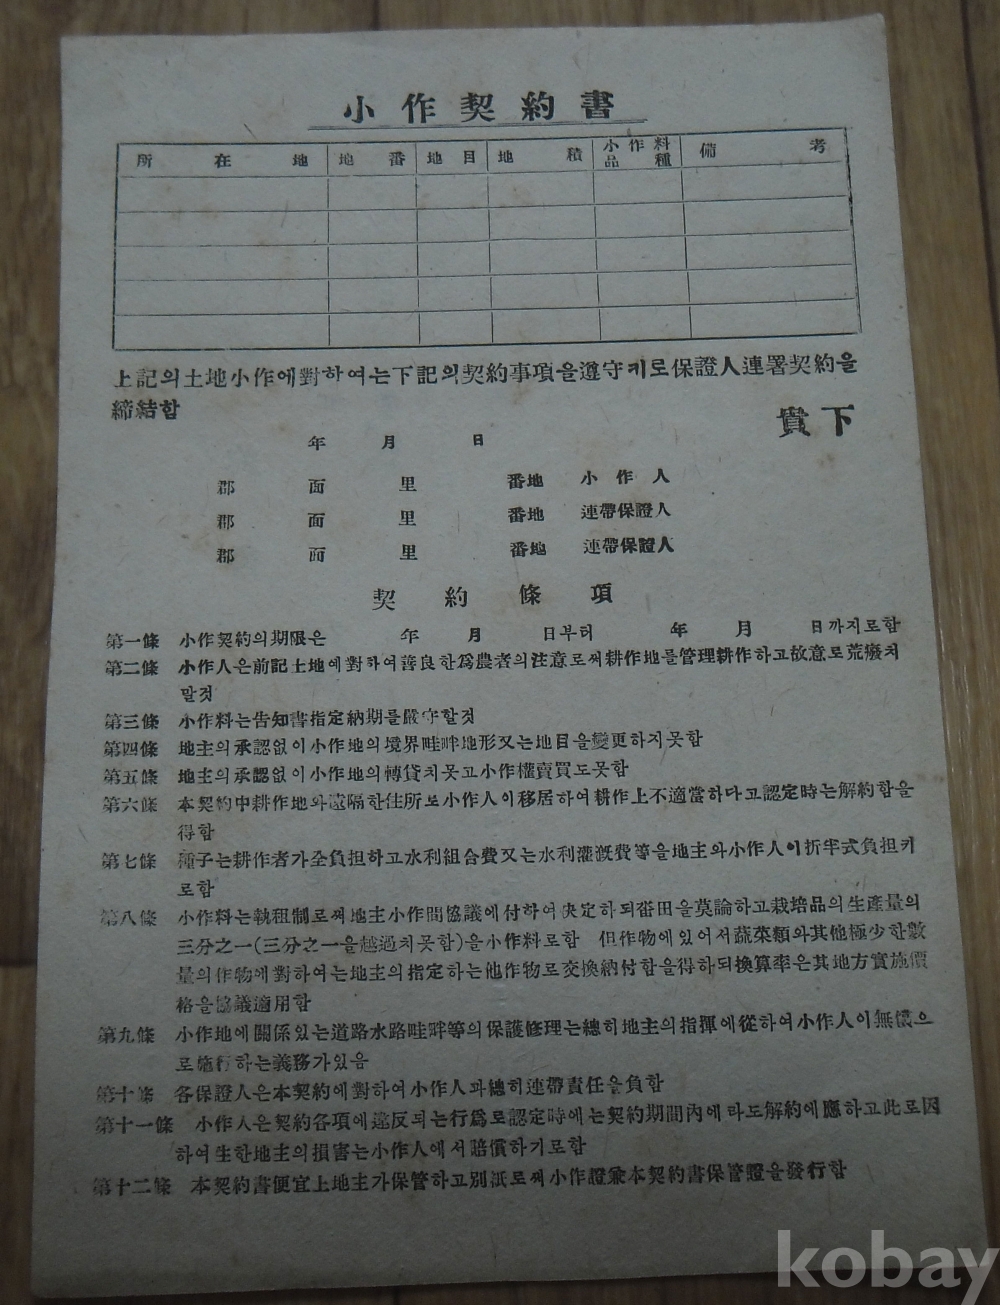 小作契約書
所在地 地番 地目 地積 小作料品種 備考
上記의土地小作에對하여는下記의契約事項을遵守키로保證人連署契約을
締結함
貴下
年 月 日
郡 面 里 番地 小作人
郡 面 里 番地 連帶保證人
郡 面 里 番地 連帶保證人
契約條項
第一條 小作契約의期限은 年 月 日부터 年 月 日까지로함
第二條 小作人은前記土地에對하여善良한爲農者의注意로써耕作地를管理耕作하고故意로荒癈치
말것
第三條 小作料는告知書指定納期를嚴守할것
第四條 地主의承認없이小作地의境界畦畔地形又는地目을變更하지못함
第五條 地主의承認없이小作地의轉貸치못고小作權賣買도못함
第六條 本契約中耕作地와遠隔한住所로小作人이移居하여耕作上不適當하다고認定時는解約함을
得함
第七條 種子는耕作者가全負担하고水利組合費又는水利灌漑費等을地主와小作人이折半式負担키
로함
第八條 小作料는執租制로써地主小作間協議에付하여决定하되畓田을莫論하고栽培品의生產量의
三分之一(三分之一을越過치못함)을小作料로함 但作物에있어서蔬菜類와其他極少한數
量의作物에對하여는地主의指定하는他作物로交換納付함을得하되換算率은其地方實施價
格을協議適用함
第九條 小作地에關係있는道路水路畦畔等의保護修理는總히地主의指揮에從하여小作人이無償으
로施行하는義務가있음
第十條 各保證人은本契約에對하여小作人과總히連帶責任을負함
第十一條 小作人은契約各項에違反되는行爲로認定時에는契約期間內에라도解約에應하고此로因
하여生한地主의損害는小作人에서賠償하기로함
第十二條 本契約書便宜上地主가保管하고別紙로써小作證兼本契約書保管證을發行함
kobay